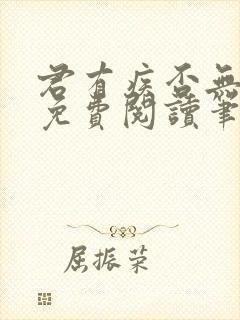 君有疾否無
免費閱讀筆
屈振荣